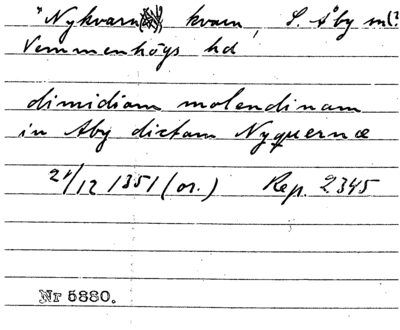 "Nykvarn kvarn, S. Åby sn(?
Vemmenhögs hd
dimidiam molendinam
in Aby dictam Nyquernæ
21/12 1351 (or.) Rep. 2345
Nr 5880.